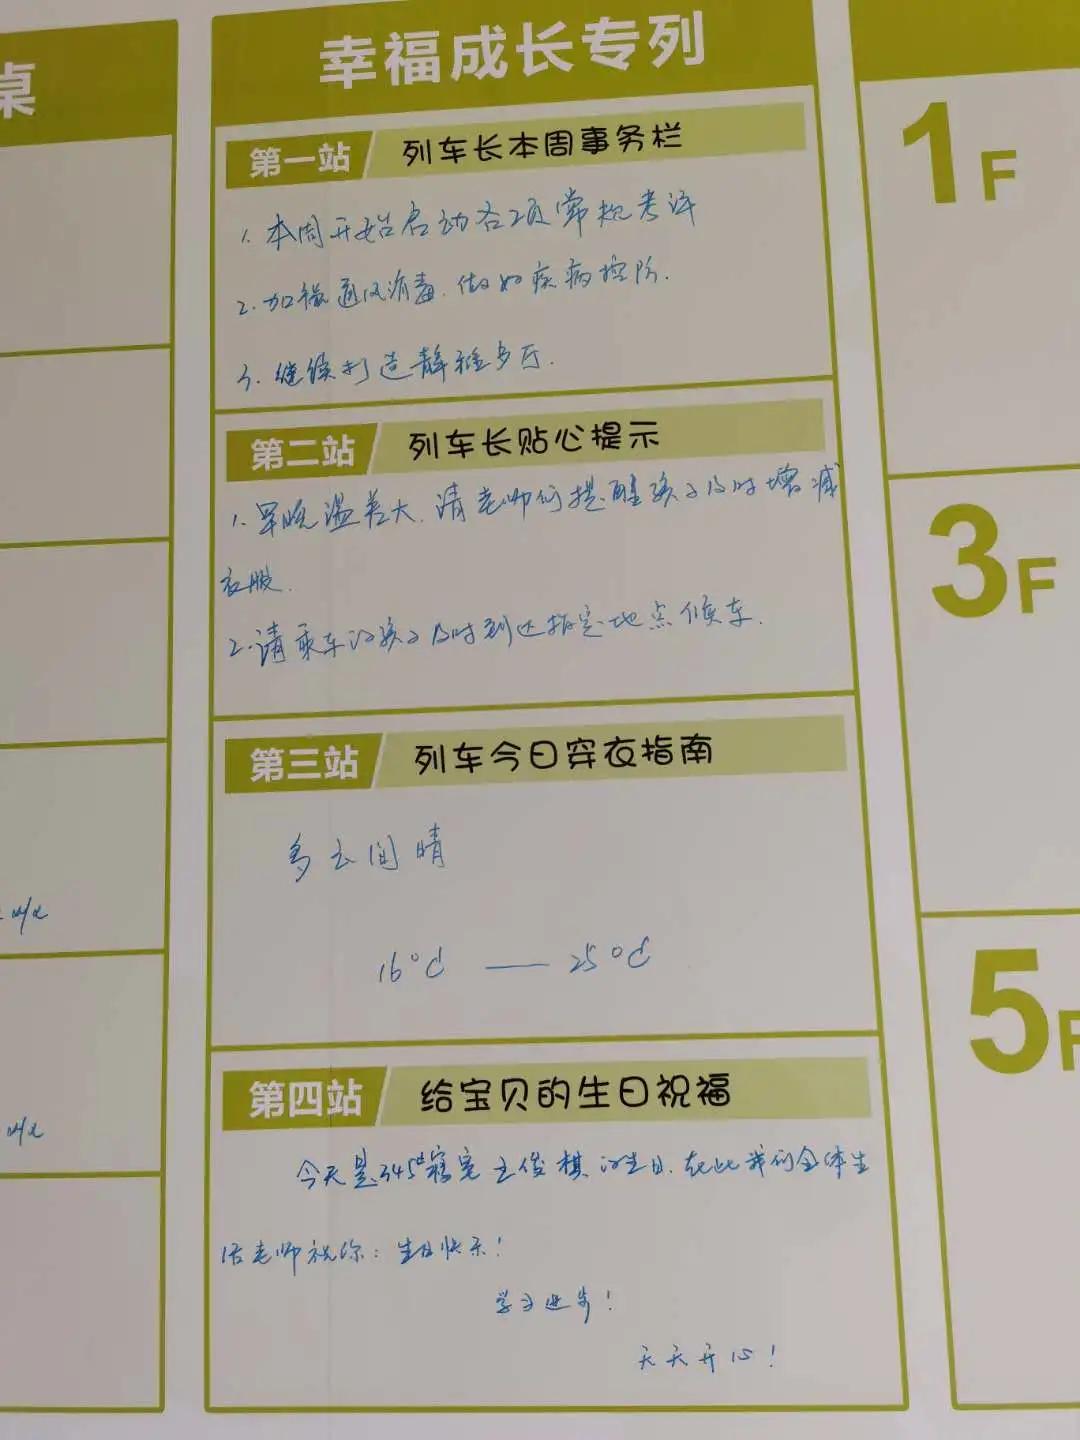 桌
幸福成长专列
第一站 列车长本周事务栏
1. 本周开始启动各项常规考评
2. 加强通风消毒. 做好疾病控防.
3. 继续打造静雅乡厅.
第二站 列车长贴心提示
1. 早晚温差大. 请老师们提醒孩子及时增减
衣服.
2. 请乘车的孩子及时到达指定地点候车.
第三站 列车今日穿衣指南
多云间晴
16°C — 25°C
第四站 给宝贝的生日祝福
今天是345#寝室王俊棋的生日. 在此我们全体生
活老师祝你: 生日快乐!
学习进步!
天天开心!
1F
3F
5F